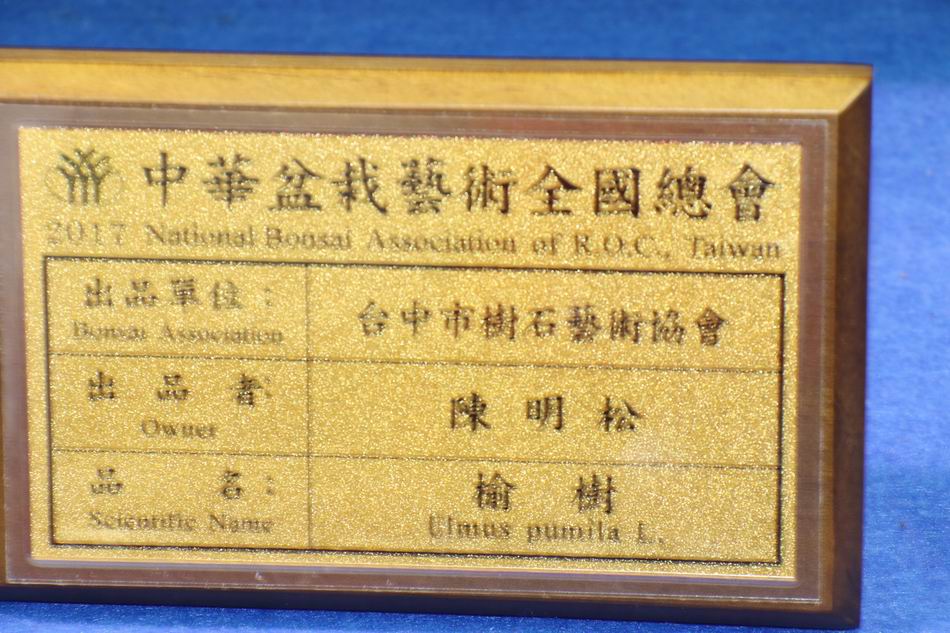 中華盆栽藝術全國總會
2017 National Bonsai Association of R.O.C., Taiwan
出品單位：
Bonsai Association
台中市樹石藝術協會
出品者：
Owner
陳明松
品名：
Scientific Name
榆樹
Ulmus pumila L.